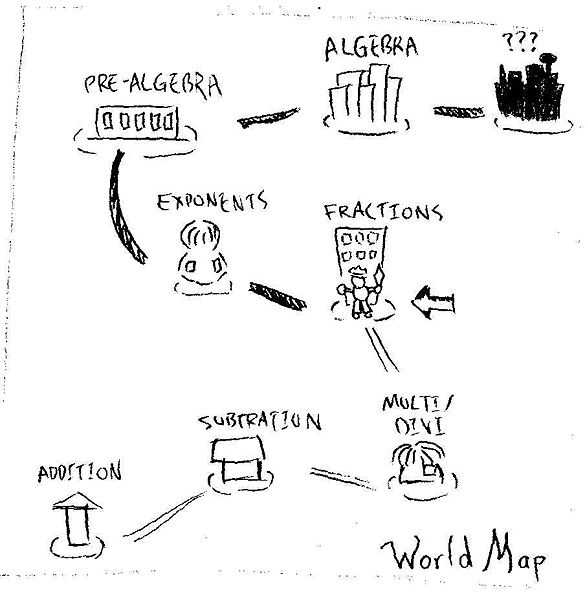 ALGEBRA
???
PRE-ALGEBRA
EXPONENTS
FRACTIONS
MULTI/
DIVI
SUBTRATION
ADDITION
World Map